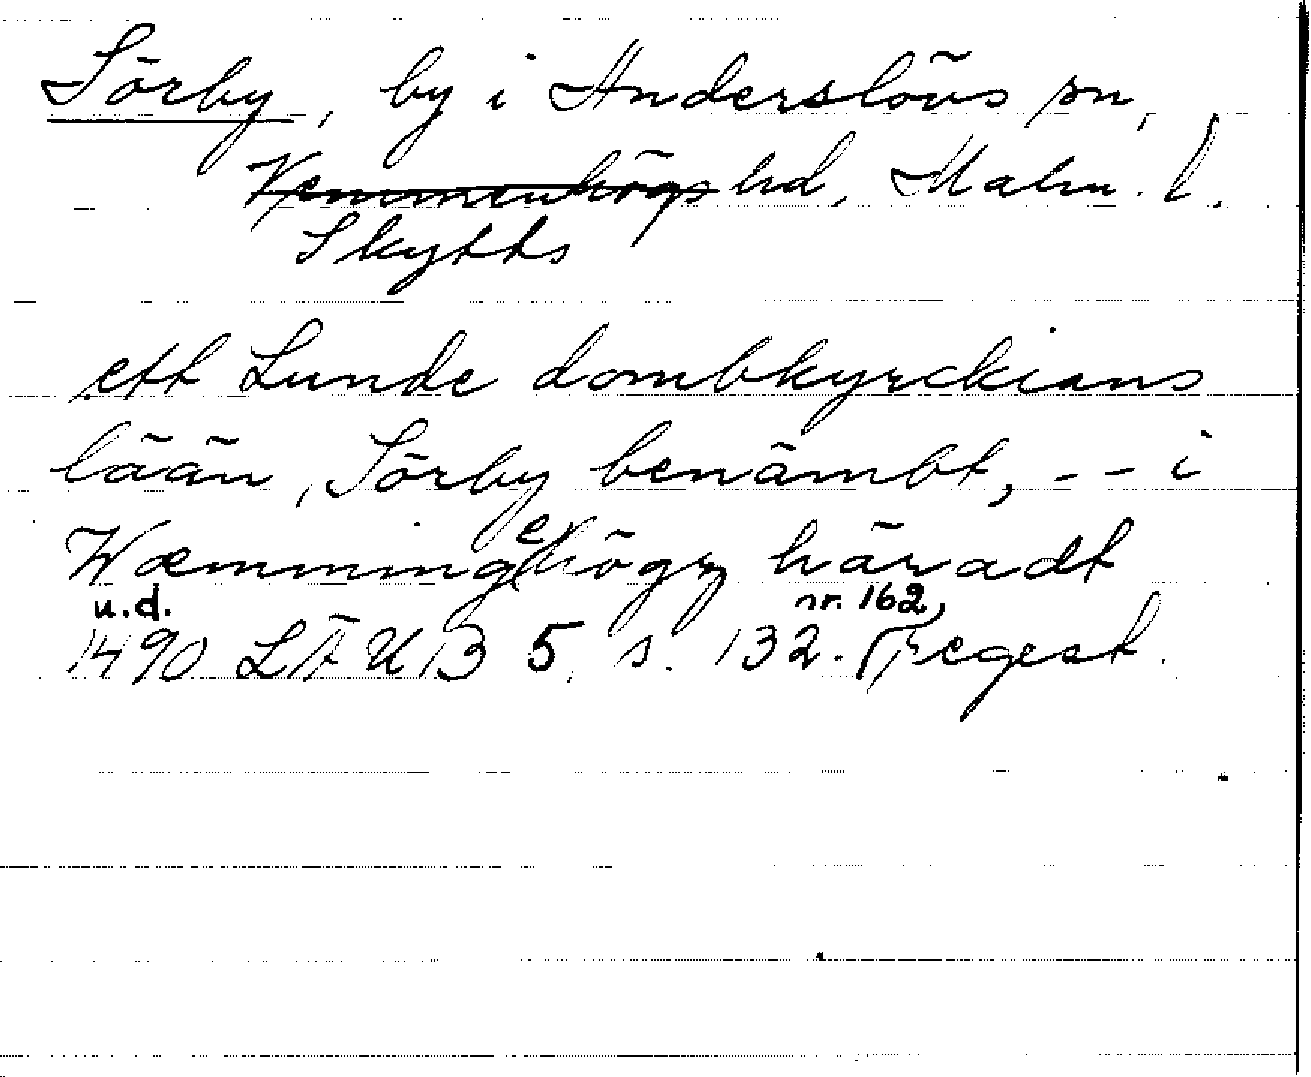 Sörby, by i Anderslövs sn,
Vemmenhögs hd, Malm. l.
Skytts
ett Lunde dombkyrckians
lään, Sörby benämbt, -- i
Wæmmingehögz häradt
u.d. nr. 162,
1490 LÄUB 5, s. 132. Regest.